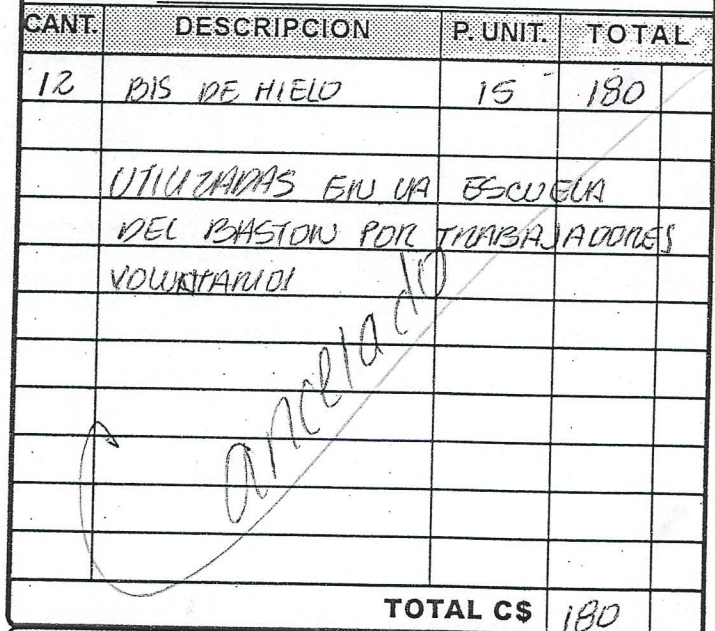 CANT. DESCRIPCION P. UNIT. TOTAL
12 BIS DE HIELO 15 180
UTILIZADAS EN LA ESCUELA
DEL BASTON POR TRABAJADORES
VOLUNTARIOS
Cancelado
TOTAL C$ 180